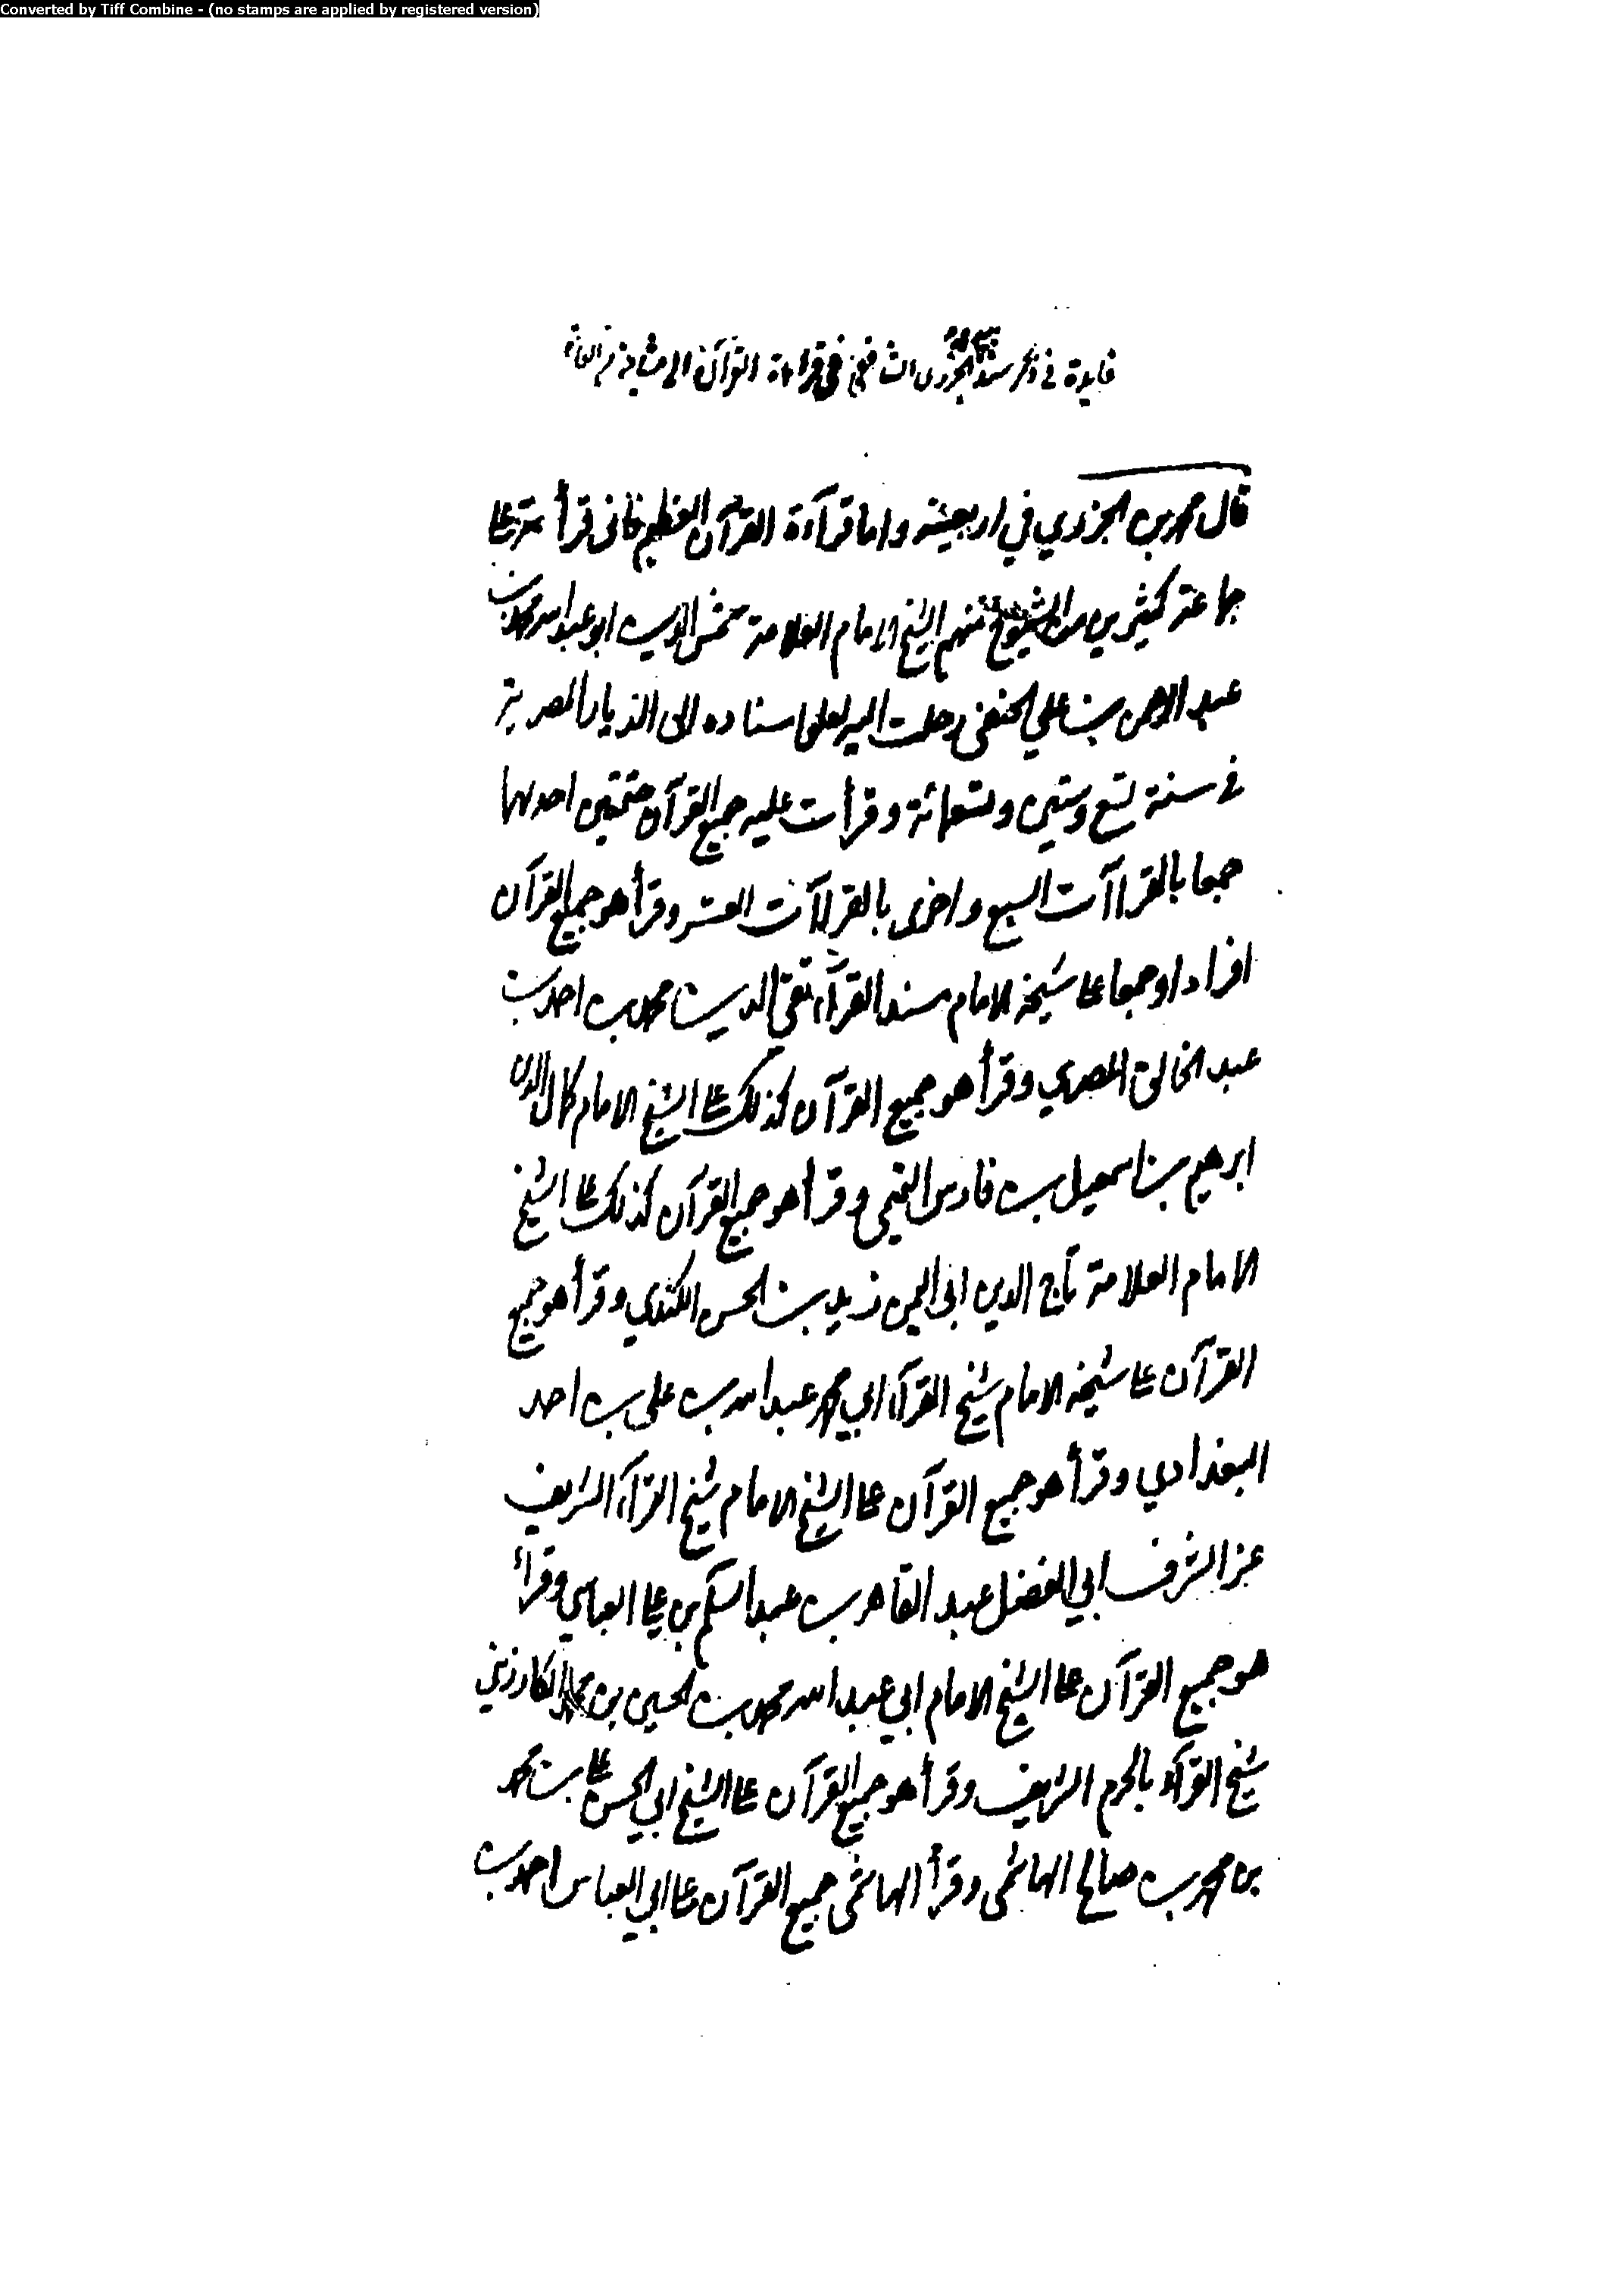 Converted by Tiff Combine - (no stamps are applied by registered version)
فايدة في ذكر سند الجزري الشافعي في قراءة القرآن
قال محمد بن الجزري في اربعينه واما قرآءة القرآن العظيم فاني قرأته على
جماعة كثيرين من الشيوخ منهم الشيخ الامام العلامة شمس الدين ابو عبد الله محمد بن
عبد الرحمن بن علي الحنفي رحلت اليه لعلى اسناده الى الديار المصرية
في سنة تسع وستين وسبعمائة وقرأت عليه جميع القرآن ختمتين احدهما
جمعا بالقراآت السبع واخرى بالقراآت العشر وقرأ هو جميع القرآن
افرادا وجمعا على شيخه الامام مسند القرآء تقي الدين محمد بن احمد بن
عبد الخالق المصري وقرأ هو جميع القرآن كذلك على الشيخ الامام كمال الدين
ابرهيم بن اسمعيل بن فارس التميمي وقرأ هو جميع القرآن كذلك على الشيخ
الامام العلامة تاج الدين ابي اليمن زيد بن الحسن الكندي وقرأ هو جميع
القرآن على شيخه الامام شيخ القرآء ابي محمد عبد الله بن علي بن احمد
البغدادي وقرأ هو جميع القرآن على الشيخ الامام شيخ القرآء الشريف
عز الشرف ابي الفضل عبد القاهر بن عبد السلام بن علي العباسي وقرأ
هو جميع القرآن على الشيخ الامام ابي عبد الله محمد بن الحسين بن محمد الكارزيني
شيخ القرآء بالحرم الشريف وقرأ هو جميع القرآن على الشيخ ابي الحسن علي بن محمد
بن محمد بن صالح الهاشمي وقرأ الهاشمي جميع القرآن على ابي العباس احمد بن